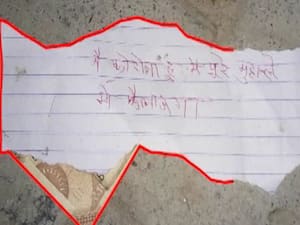 मै कोरोना हूं मै पुरे मुहल्ले
मे फैलाऊंगा।